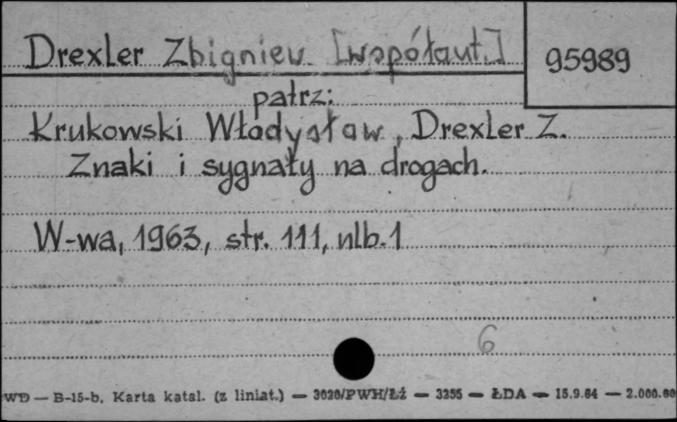 Drexler Zbigniew [współaut.]
95989
patrz:
Krukowski Władysław, Drexler Z.
Znaki i sygnały na drogach.
W-wa, 1963, str. 111, nlb. 1
6
WD — B-15-b. Karta katal. (z liniat.) — 3020/PWH/Łź — 3255 — ŁDA — 15.9.64 — 2.000.00